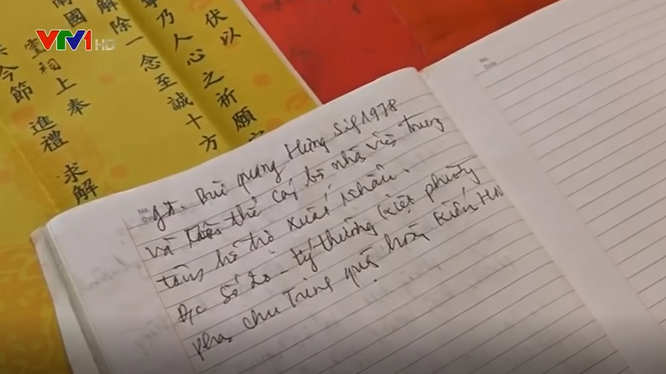 VTV1 HD
伏以
乃人心之祈願
解除一念至誠十方
南國
堂祠上奉
今節 進禮 求解
gđ. Bùi quang Hưng Sig 1978
và thể Cán bộ nhà việt trung
tâm hỗ trợ xuất khẩu.
Đ/c Số 20 - lý thường kiệt phường
phan chu Trinh quận hoàn kiếm HN